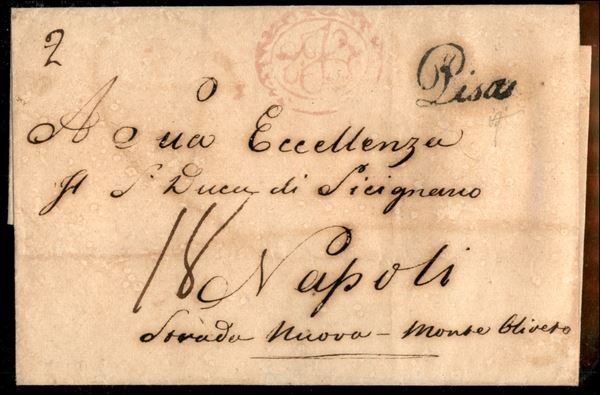 2
Pisa
A Sua Eccellenza
Il S. Duca di Sicignano
18 Napoli
Strada Nuova - Monte Oliveto